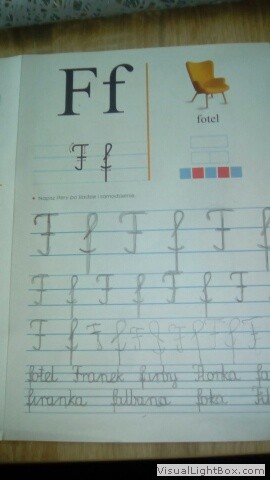 Ff
fotel
F f
• Napisz litery po śladzie i samodzielnie.
F f F f F f
F f F f F f F
F f F f F f F f F f F
fotel Franek firby Florka
firanka falbana foka
www.VisualLightBox.com